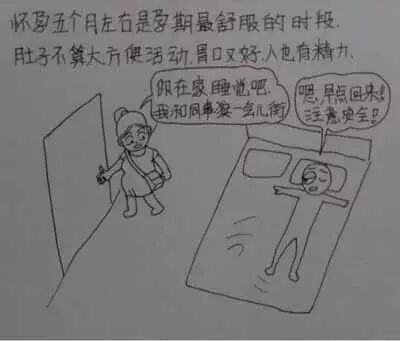 怀孕五个月左右是孕期最舒服的时段.
肚子不算大.方便活动.胃口又好.人也有精力.
你在家睡觉吧.
我和同事逛一会儿街
嗯,早点回来!
注意安全!